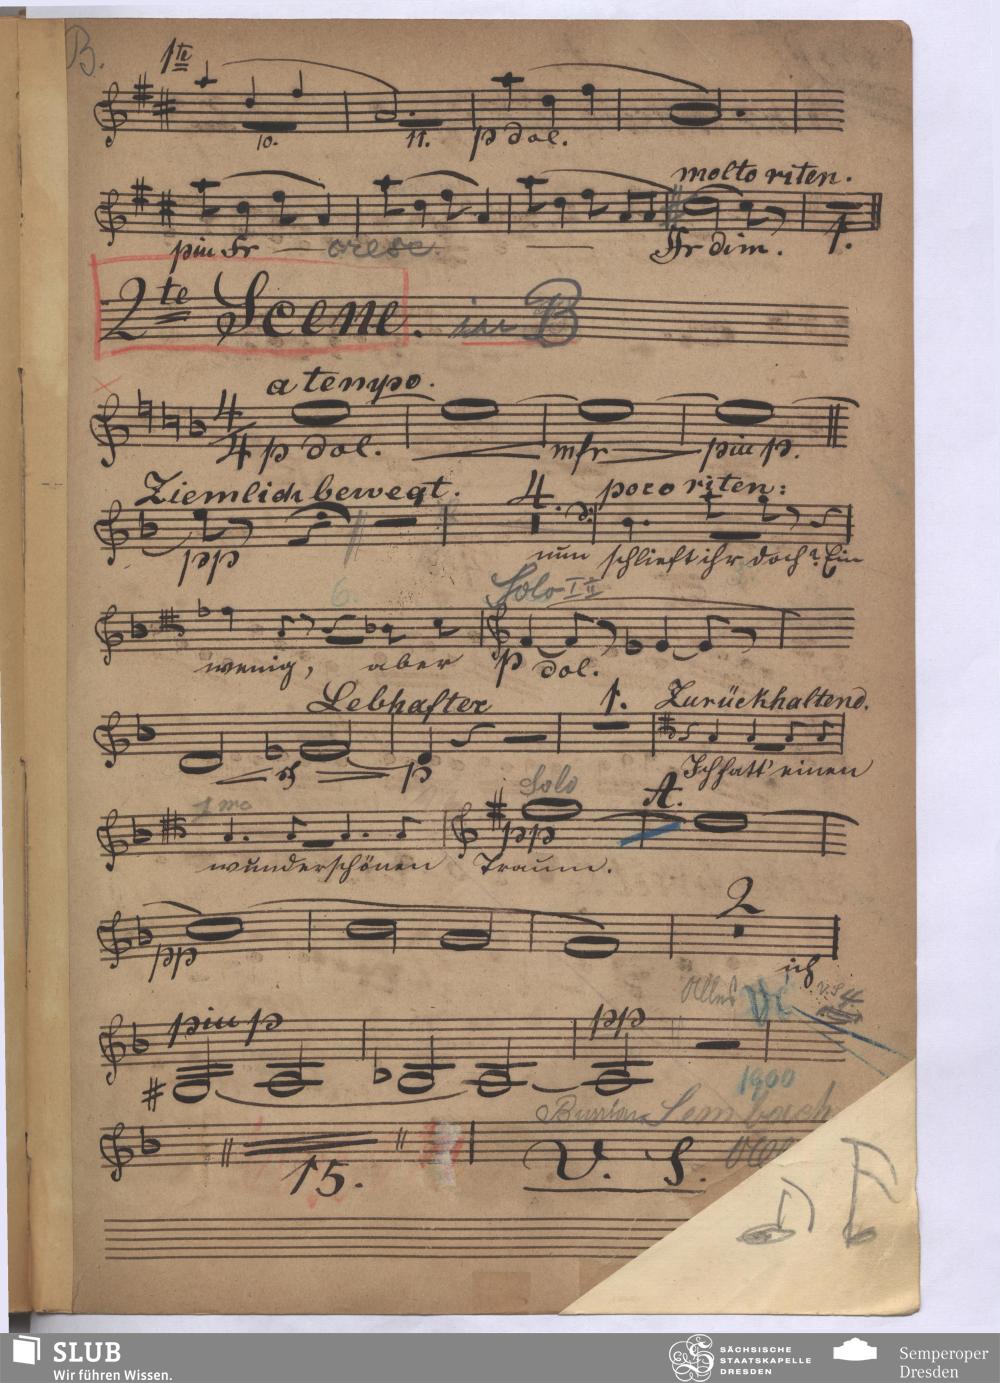 B. 1te
10. 11. p dol.
molto riten.
piu fr cresc. fr dim. 1.
2te Scene. in B
a tempo.
4/4 p dol. mfr piu p.
Ziemlich bewegt. 4. poco riten:
pp nun schlieft ihr doch? Ein
6. Solo I II
wenig, aber p dol.
Lebhafter 1. Zurückhaltend.
sf p Ich hatt' einen
1mo Solo A.
pp
wunderschönen Traum.
2
pp ich
Alles V.S.
piu p pp
1900
Lembach
15. V. S.
SLUB
Wir führen Wissen.
SÄCHSISCHE
STAATSKAPELLE
DRESDEN
Semperoper
Dresden